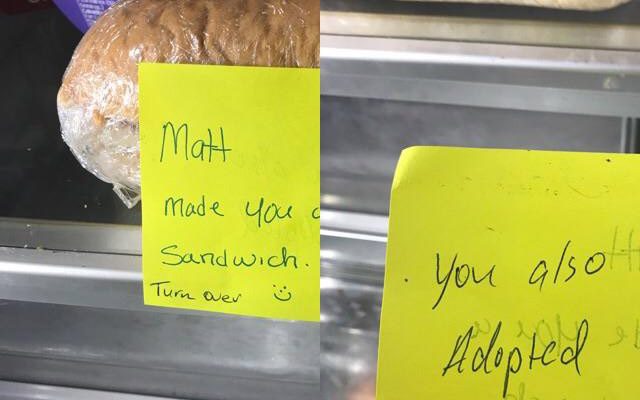 Matt
Made you a
Sandwich.
Turn over
You also
Adopted